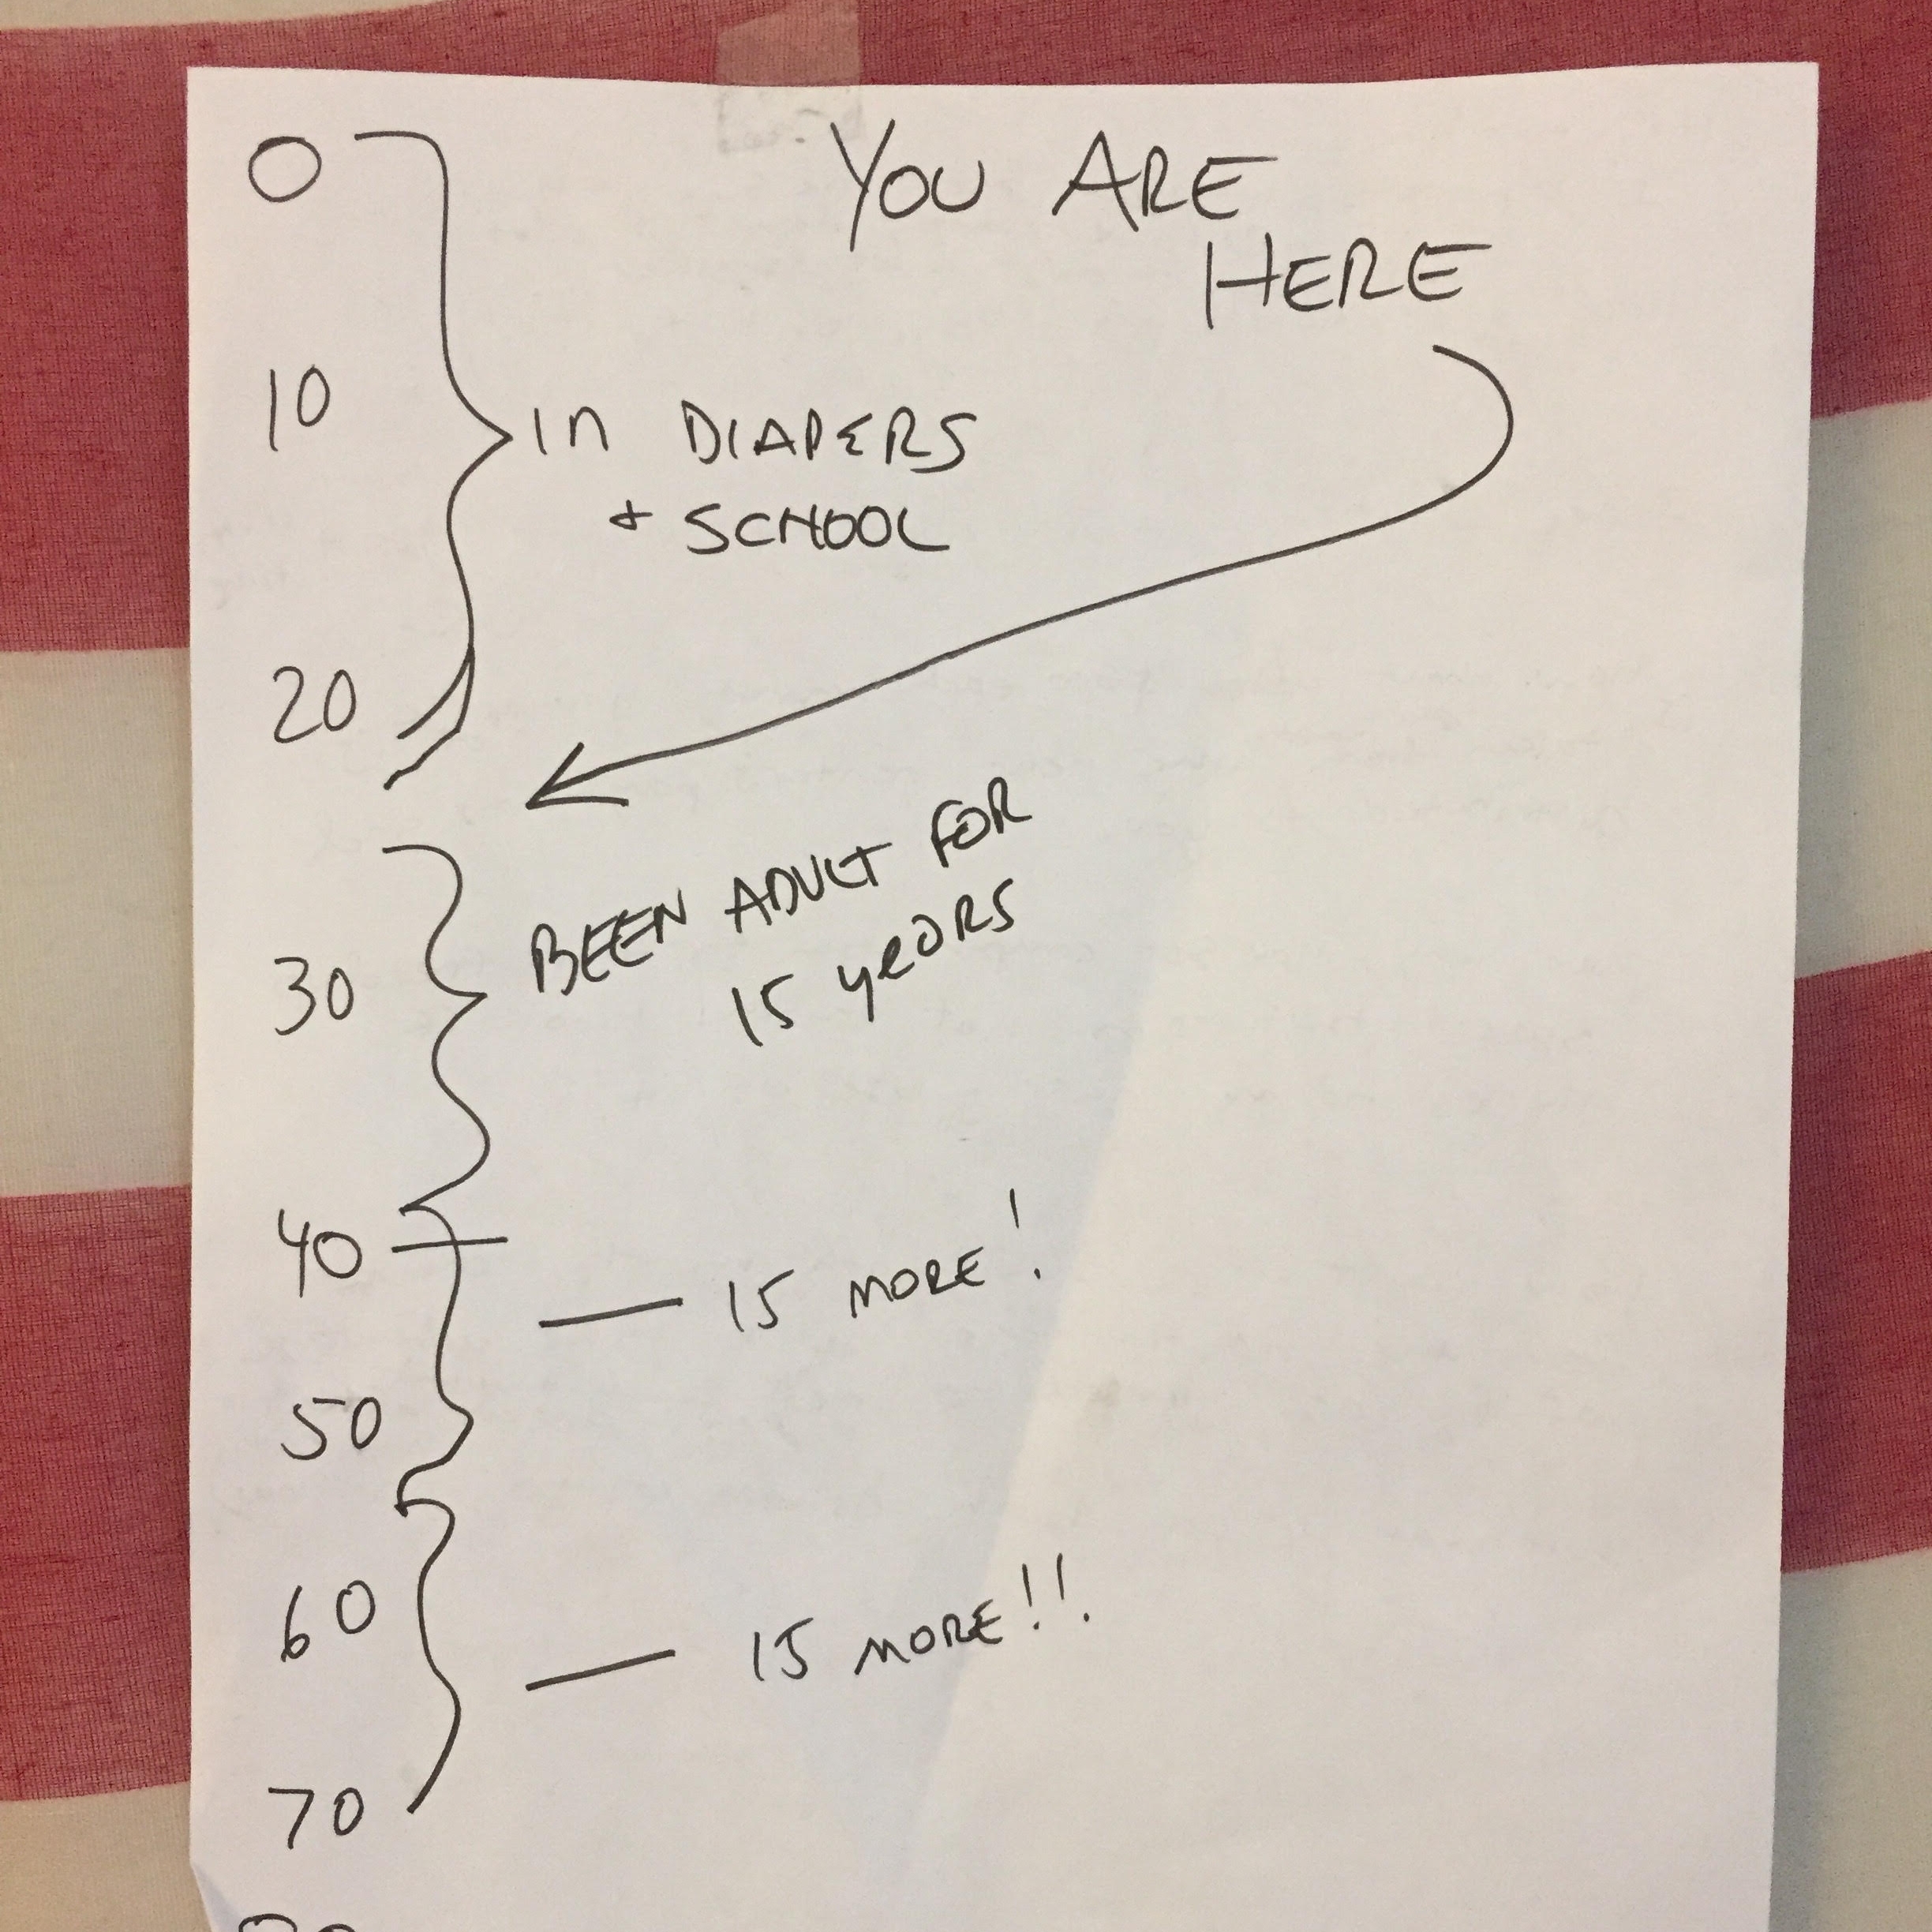 0
YOU ARE
HERE
10
In DIAPERS
+ SCHOOL
20
BEEN ADULT FOR
15 yeaRS
30
40
15 MORE!
50
60
15 MORE!!
70